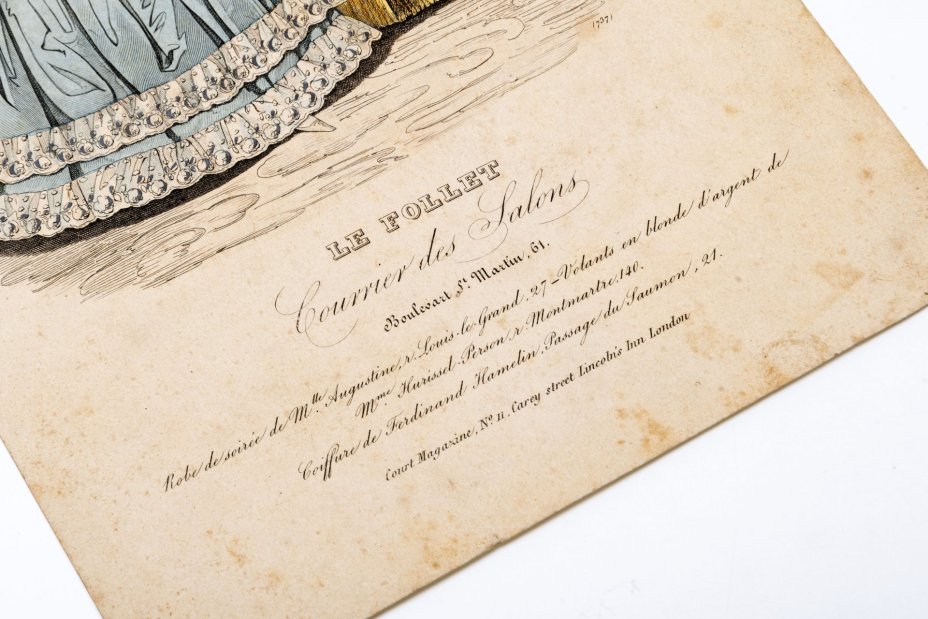 1737
LE FOLLET
Courrier des Salons
Boulevart St. Martin, 61.
Robe de soirée de Mlle. Augustine, r. Louis-le-Grand, 27 – Volants en blonde d'argent de
Mme Hurissel-Person, r. Montmartre, 140.
Coiffure de Ferdinand Hamelin, Passage du Saumon, 21.
Court Magazine, No. 11, Carey street Lincoln's Inn London